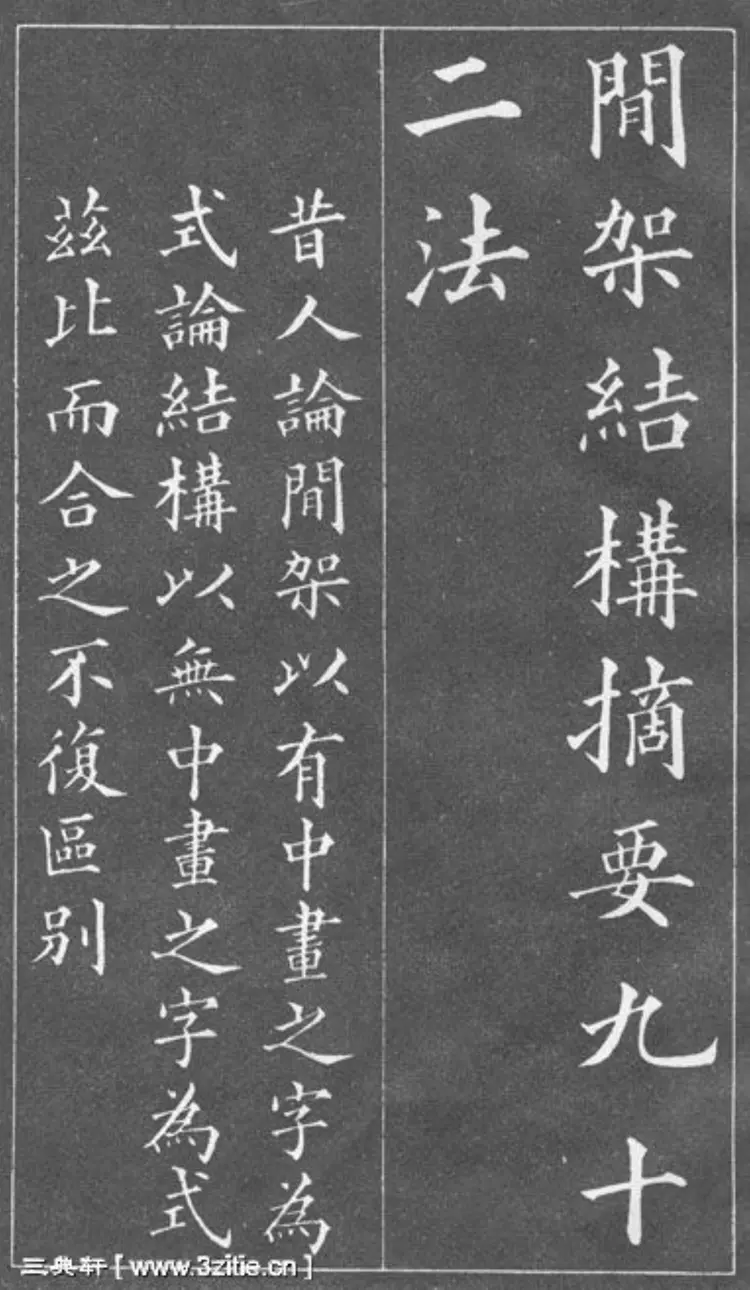 閒架結構摘要九十
二法
昔人論閒架以有中畫之字為
式論結構以無中畫之字為式
茲比而合之不復區別
三典轩[www.3zitie.cn]